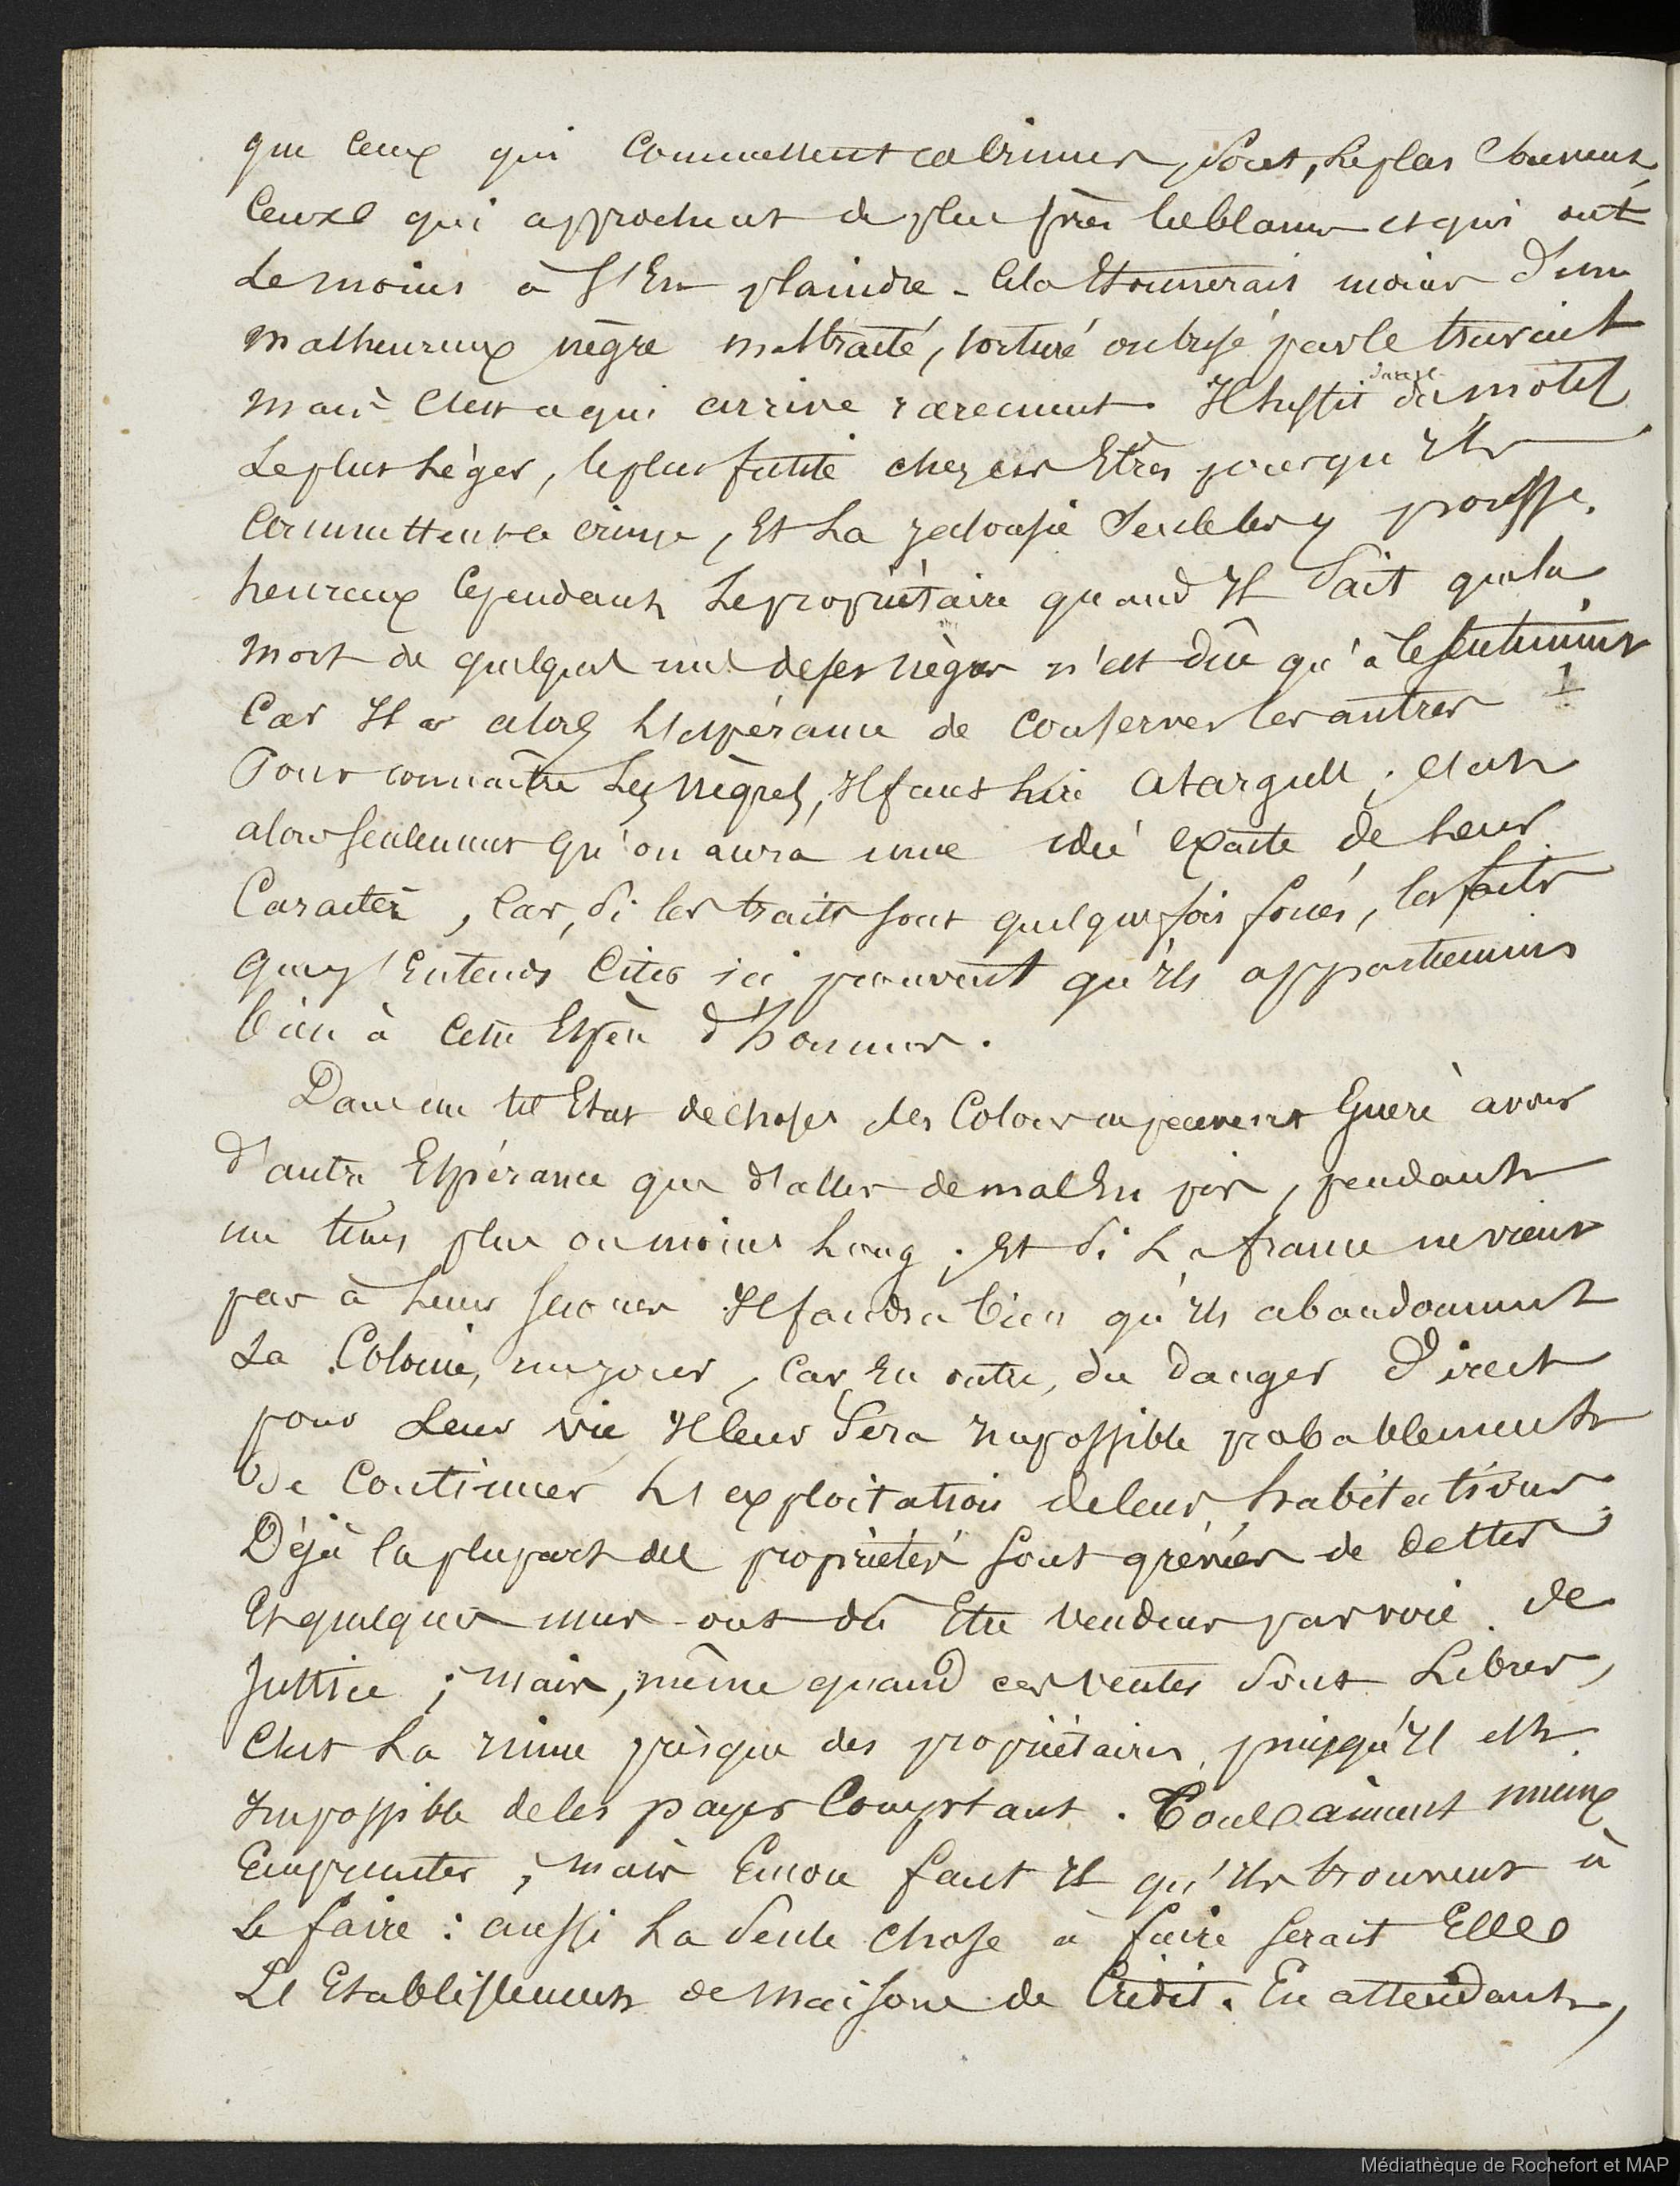 que ceux qui commettent ces crimes, sont, le plus souvent,
ceux qui approchent de plus près les blancs et qui ont
le moins à s'en plaindre - Cela étonnerait moins d'un
malheureux nègre maltraité, torturé ou brisé par le travail
mais c'est ce qui arrive rarement. Il suffit du motif
le plus léger, le plus futile chez ces Etres pour qu'ils
commettent le crime, Et La jalousie seule les y pousse.
heureux cependant Le propriétaire quand Il sait que la
mort de quelques uns de ses nègres n'est dûe qu'à ce sentiment
Car Il a alors L'espérance de conserver les autres 1
Pour connaître Les nègres, Il faut Lire Atargull ; c'est
alors seulement qu'on aura une idée exacte de Leur
Caractère, Car, si les traits sont quelques fois forcés, les faits
que j'entends citer ici prouvent qu'ils appartiennent
bien à cette Espèce d'hommes.
Dans un tel Etat de choses les Colons ne peuvent Guère avoir
d'autre Espérance que d'aller de mal En pis, pendant
un tems plus ou moins Long ; Et si La france ne vient
pas à Leur secours Il faudra bien qu'ils abandonnent
La Colonie, un jour, Car, En outre, du danger Direct
pour Leur vie, Il leur sera Impossible probablement
de Continuer L'exploitation de leurs habitations.
Déjà la plupart des propriétés sont grévées de dettes,
Et quelques unes ont dû Etre vendues par voie de
Justice ; mais, même quand ces ventes sont Libres,
C'est La ruine presque des propriétaires, puisqu'Il est
Impossible de les payer Comptant. Tous aiment mieux
Emprunter, mais Encore faut Il qu'ils trouvent à
Le faire : aussi La seule chose à faire serait Elle
L'Etablissement de maisons de Crédit. En attendant,
Médiathèque de Rochefort et MAP